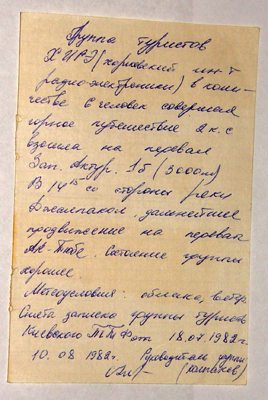 Группа туристов
ХИРЭ (харьковский ин-т
радио-электроники) в коли-
честве 6 человек совершая
горное путешествие 2 к.с
взошла на перевал
Зап. Актур. 1б (3000м)
В 14¹⁵ со стороны реки
Джалпакол. дальнейшее
продвижение на перевал
Ак-Тюбе. Состояние группы
хорошее.
Метеоусловия: облака, ветр.
Снята записка группы туристов
Киевского от 18.07.1982г.
10.08 1982г. Руководитель группы